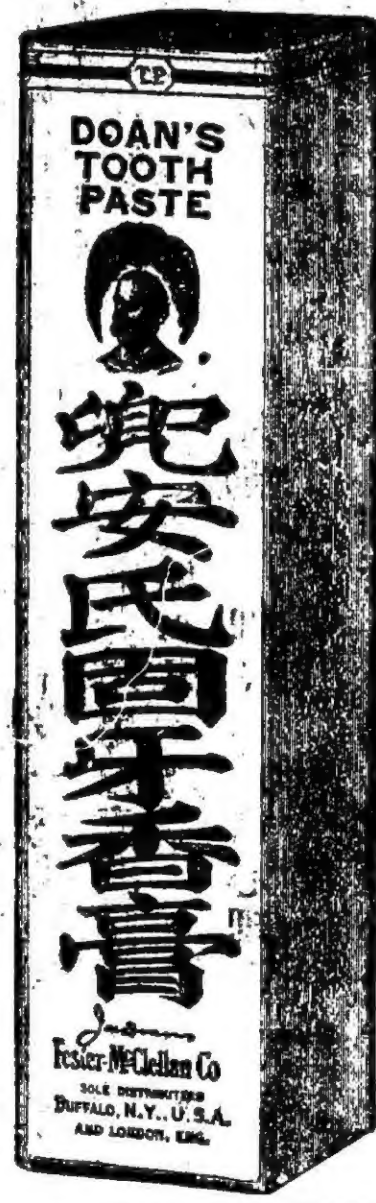 DOAN'S
TOOTH
PASTE
兜安氏固牙香膏
Foster-McClellan Co
SOLE DISTRIBUTERS
BUFFALO, N.Y., U.S.A.
AND LONDON, ENG.